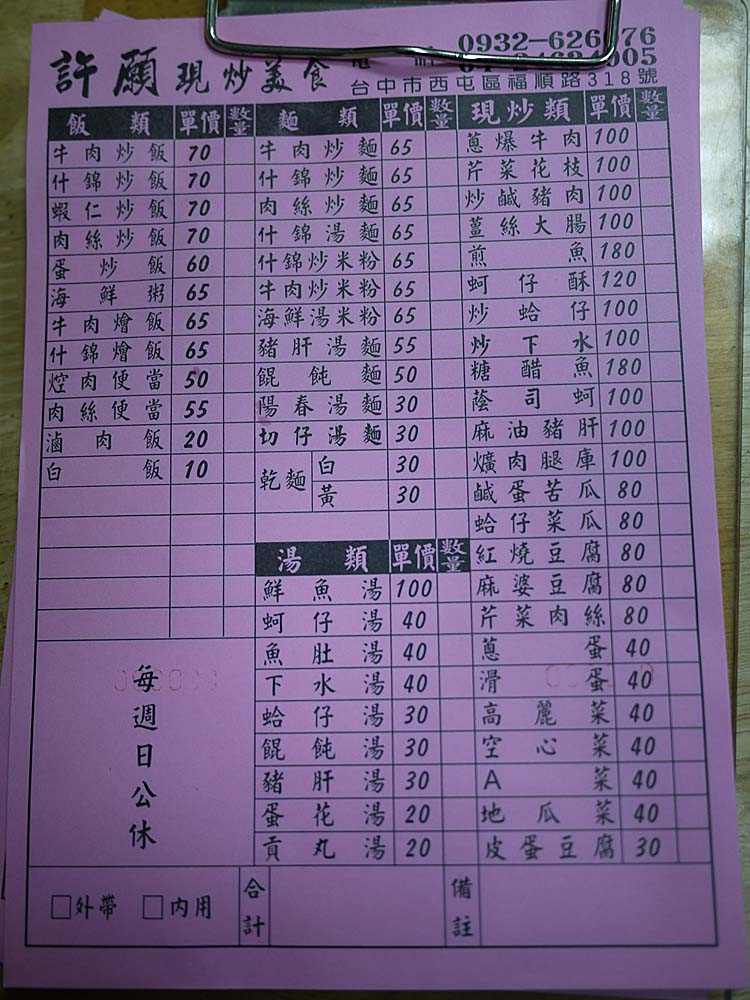 許願現炒美食
0932-626
台中市西屯區福順路318號
飯類 單價 數量
牛肉炒飯 70
什錦炒飯 70
蝦仁炒飯 70
肉絲炒飯 70
蛋炒飯 60
海鮮粥 65
牛肉燴飯 65
什錦燴飯 65
焢肉便當 50
肉絲便當 55
滷肉飯 20
白飯 10
每週日公休
麵類 單價 數量
牛肉炒麵 65
什錦炒麵 65
肉絲炒麵 65
什錦湯麵 65
什錦炒米粉 65
牛肉炒米粉 65
海鮮湯米粉 65
豬肝湯麵 55
餛飩麵 50
陽春湯麵 30
切仔湯麵 30
乾麵 白 30
黃 30
湯類 單價 數量
鮮魚湯 100
蚵仔湯 40
魚肚湯 40
下水湯 40
蛤仔湯 30
餛飩湯 30
豬肝湯 30
蛋花湯 20
貢丸湯 20
現炒類 單價 數量
蔥爆牛肉 100
芹菜花枝 100
炒鹹豬肉 100
薑絲大腸 100
煎魚 180
蚵仔酥 120
炒蛤仔 100
炒下水 100
糖醋魚 180
蔭司蚵 100
麻油豬肝 100
爌肉腿庫 100
鹹蛋苦瓜 80
蛤仔菜瓜 80
紅燒豆腐 80
麻婆豆腐 80
芹菜肉絲 80
蔥蛋 40
滑蛋 40
高麗菜 40
空心菜 40
A菜 40
地瓜菜 40
皮蛋豆腐 30
□外帶 □內用
合計
備註